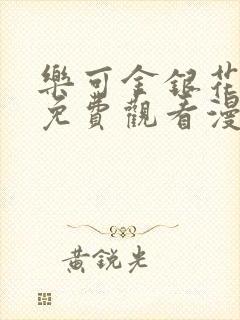 樂可金銀花
免費觀看漫
黃銳光